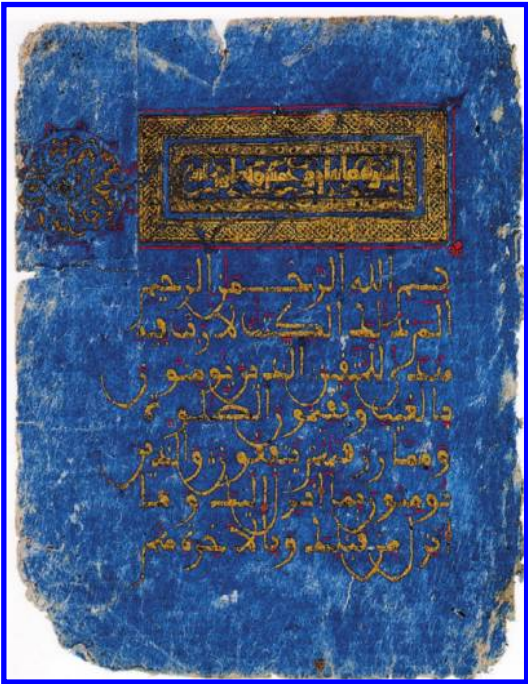 بسم الله الرحمن الرحيم
الم ذلك الكتب لا ريب فيه
هدى للمتقين الذين يومنون
بالغيب ويقيمون الصلوة
ومما رزقنهم ينفقون والذين
يومنون بما انزل اليك وما
انزل من قبلك وبالاخرة هم